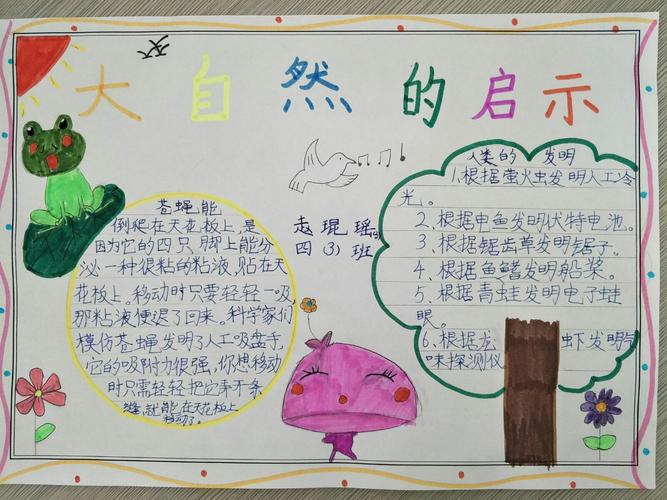 大自然的启示
苍蝇能
倒爬在天花板上,是
因为它的四只脚上能分
泌一种很粘的粘液,贴在天
花板上。移动时只要轻轻一吸,
那粘液便退了回来。科学家们
模仿苍蝇发明了人工吸盘手,
它的吸附力很强,你想移动
时只需轻轻把它弄开条
缝,就能在天花板上
移动了。
赵琨瑶
四(3)班
人类的 发明
1.根据萤火虫发明人工冷
光。
2.根据电鱼发明伏特电池。
3.根据锯齿草发明锯子。
4.根据鱼鳍发明船桨。
5.根据青蛙发明电子蛙
眼。
6.根据龙虾发明气
味探测仪